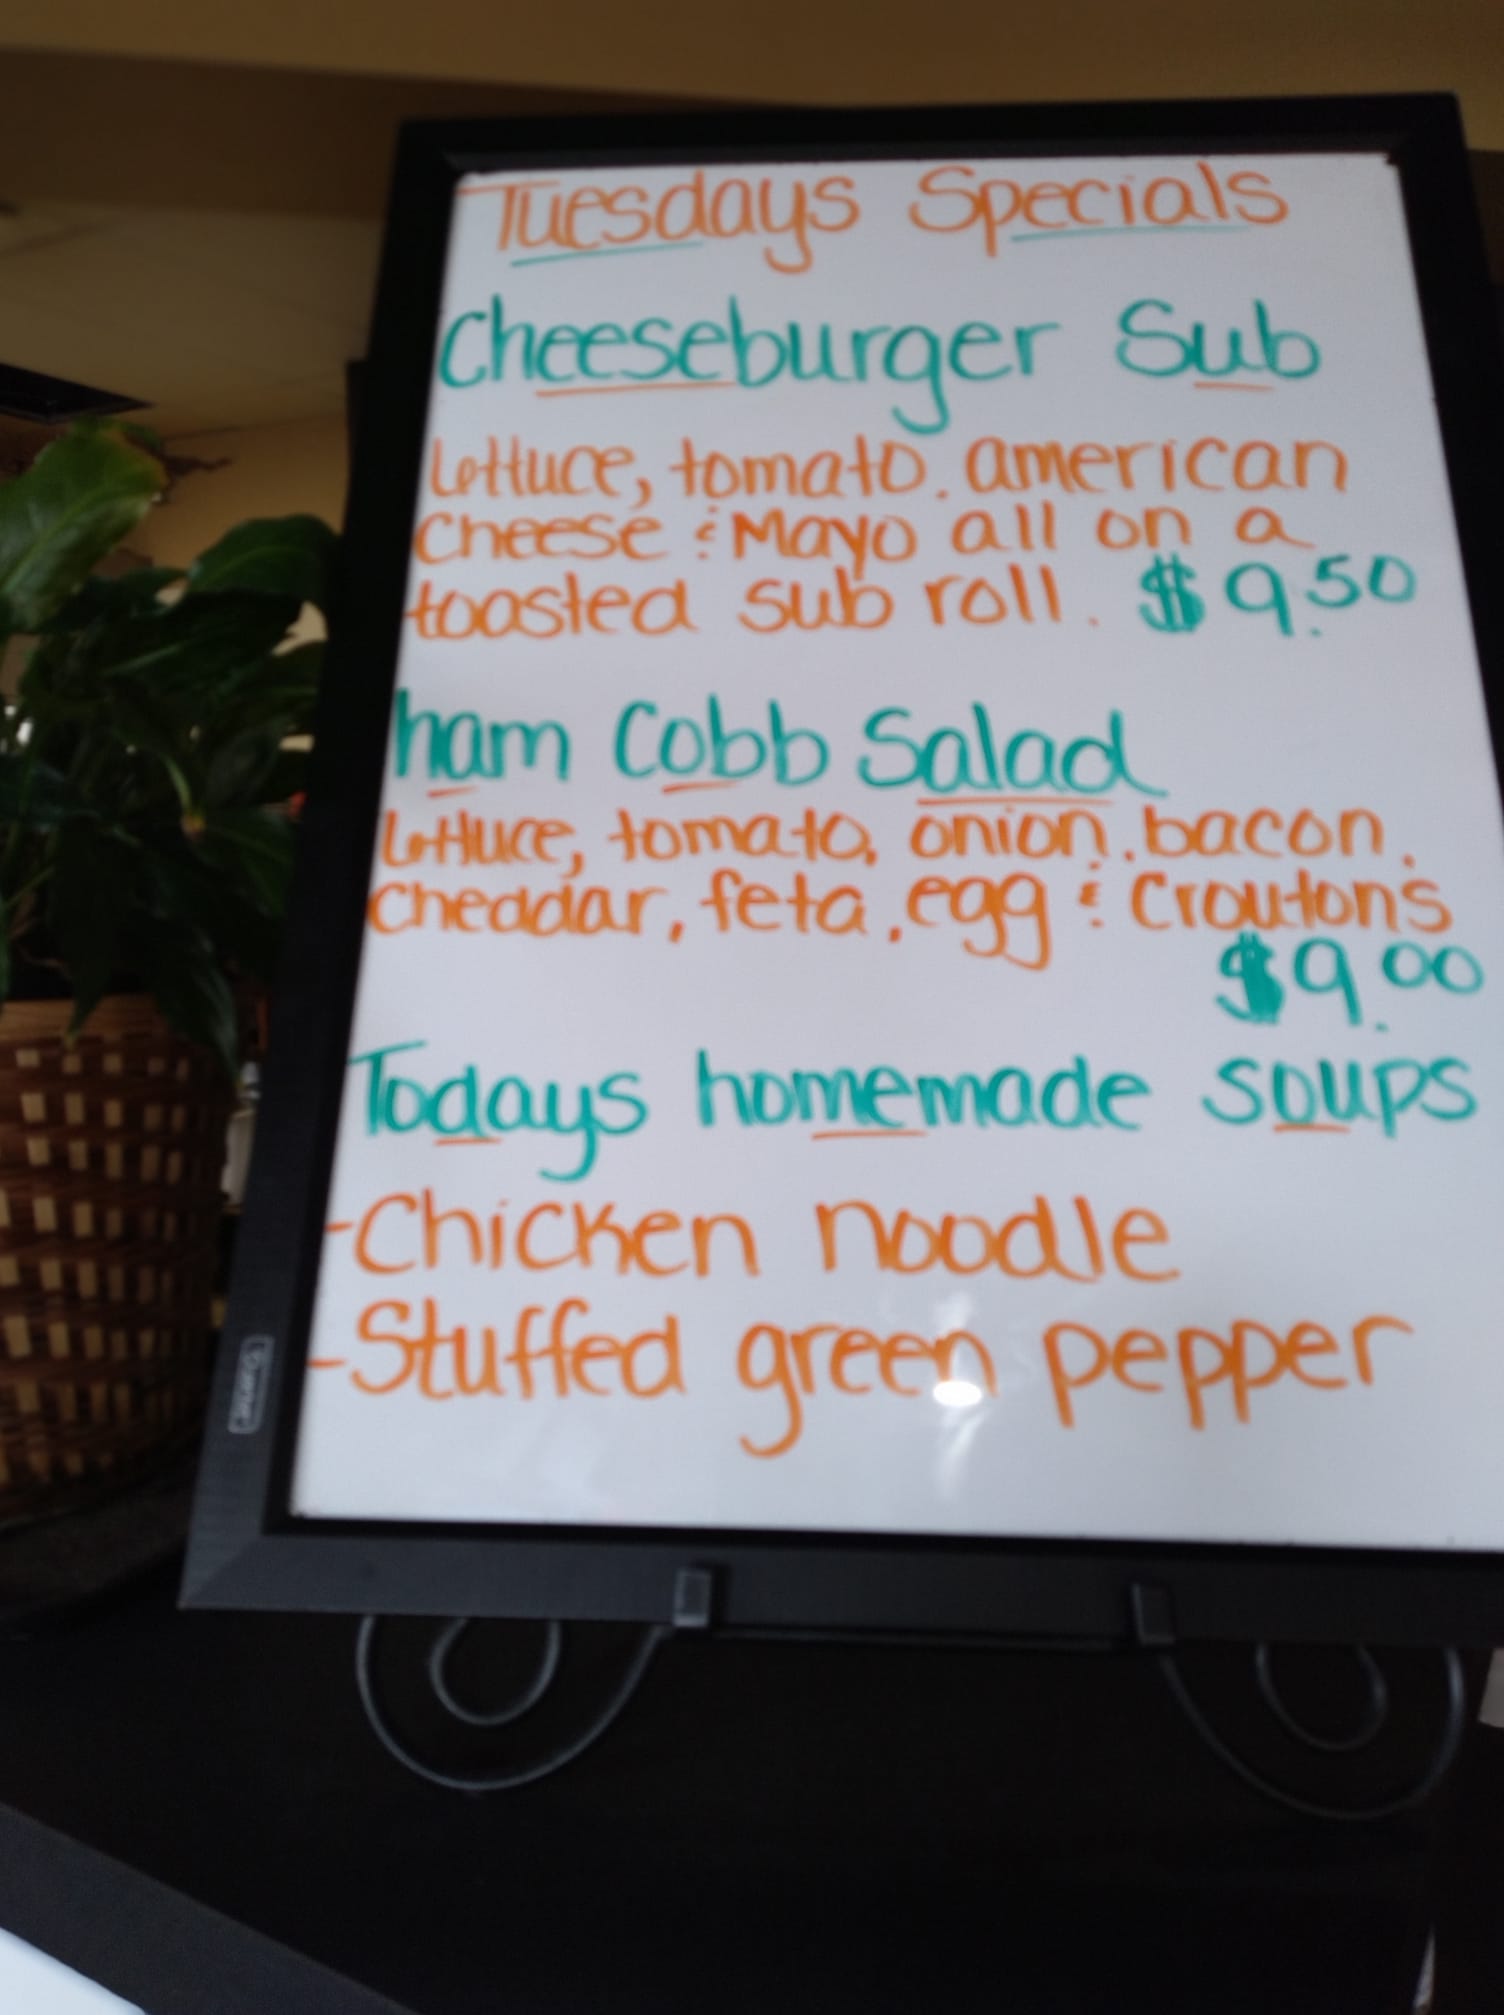 Tuesdays Specials
Cheeseburger Sub
Lettuce, tomato, american
Cheese & Mayo all on a
toasted sub roll. $9.50
ham Cobb Salad
Lettuce, tomato, onion, bacon,
Cheddar, feta, egg & Croutons
$9.00
Todays homemade soups
-Chicken noodle
-Stuffed green pepper
Quartet